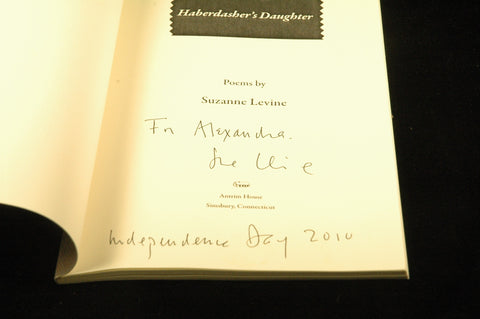 Haberdasher's Daughter
Poems by
Suzanne Levine
For Alexandra.
Antrim House
Simsbury, Connecticut
Independence Day 2010